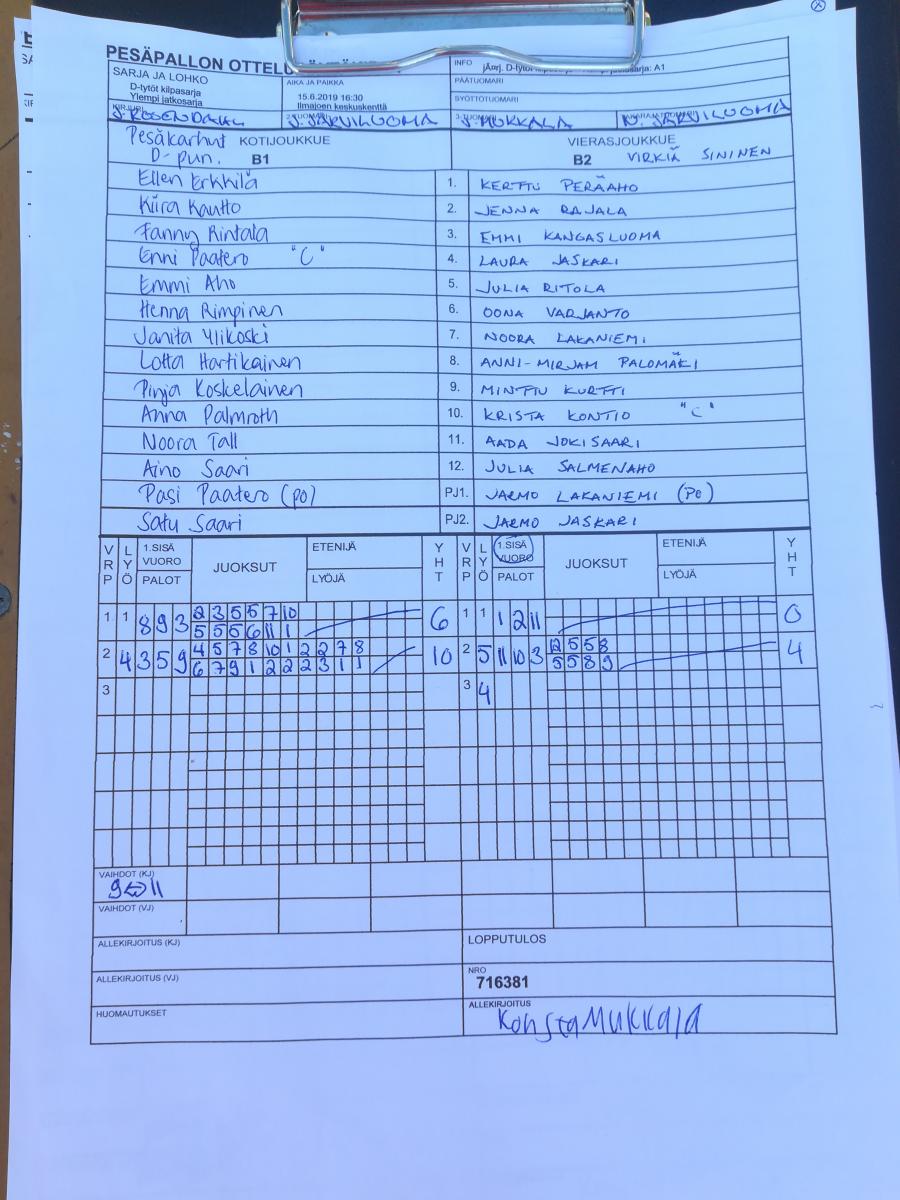 PESÄPALLON OTTELU
SARJA JA LOHKO
D-tytöt kilpasarja
Ylempi jatkosarja
AIKA JA PAIKKA
15.6.2019 16:30
Ilmajoen keskuskenttä
INFO
sarja: A1
PÄÄTUOMARI
SYÖTTÖTUOMARI
J. ROSENDAHL J. JÄRVILUOMA J. MUKKALA N. JÄRVILUOMA
Pesäkarhut KOTIJOUKKUE VIERASJOUKKUE
D-pun. B1 B2 VIRKIÄ SININEN
Ellen Erkkilä 1. KERTTU PERÄAHO
Kiira Kautto 2. JENNA RAJALA
Fanny Rintala 3. EMMI KANGASLUOMA
Enni Paatero "C" 4. LAURA JASKARI
Emmi Aho 5. JULIA RITOLA
Henna Rimpinen 6. OONA VARJANTO
Janita Ylikoski 7. NOORA LAKANIEMI
Lotta Hartikainen 8. ANNI-MIRJAM PALOMÄKI
Pinja Koskelainen 9. MINTTU KURTTI
Anna Palmroth 10. KRISTA KONTIO "C"
Noora Tall 11. AADA JOKISAARI
Aino Saari 12. JULIA SALMENAHO
Pasi Paatero (po) PJ1. JARMO LAKANIEMI (PO)
Satu Saari PJ2. JARMO JASKARI
VRP LYÖ 1.SISÄ VUORO PALOT JUOKSUT ETENIJÄ LYÖJÄ YHT VRP LYÖ 1.SISÄ VUORO PALOT JUOKSUT ETENIJÄ LYÖJÄ YHT
1 1 8 9 3 2 3 5 5 7 10 6 1 1 1 2 11 0
5 5 5 6 11 1
2 4 3 5 9 4 5 7 8 10 1 2 2 7 8 10 2 5 11 10 3 12 5 5 8 4
6 7 9 1 2 2 2 3 1 1 5 5 8 9
3 3 4
VAIHDOT (KJ)
9⇔11
VAIHDOT (VJ)
ALLEKIRJOITUS (KJ) LOPPUTULOS
ALLEKIRJOITUS (VJ) NRO
716381
HUOMAUTUKSET ALLEKIRJOITUS
Konsta Mukkala